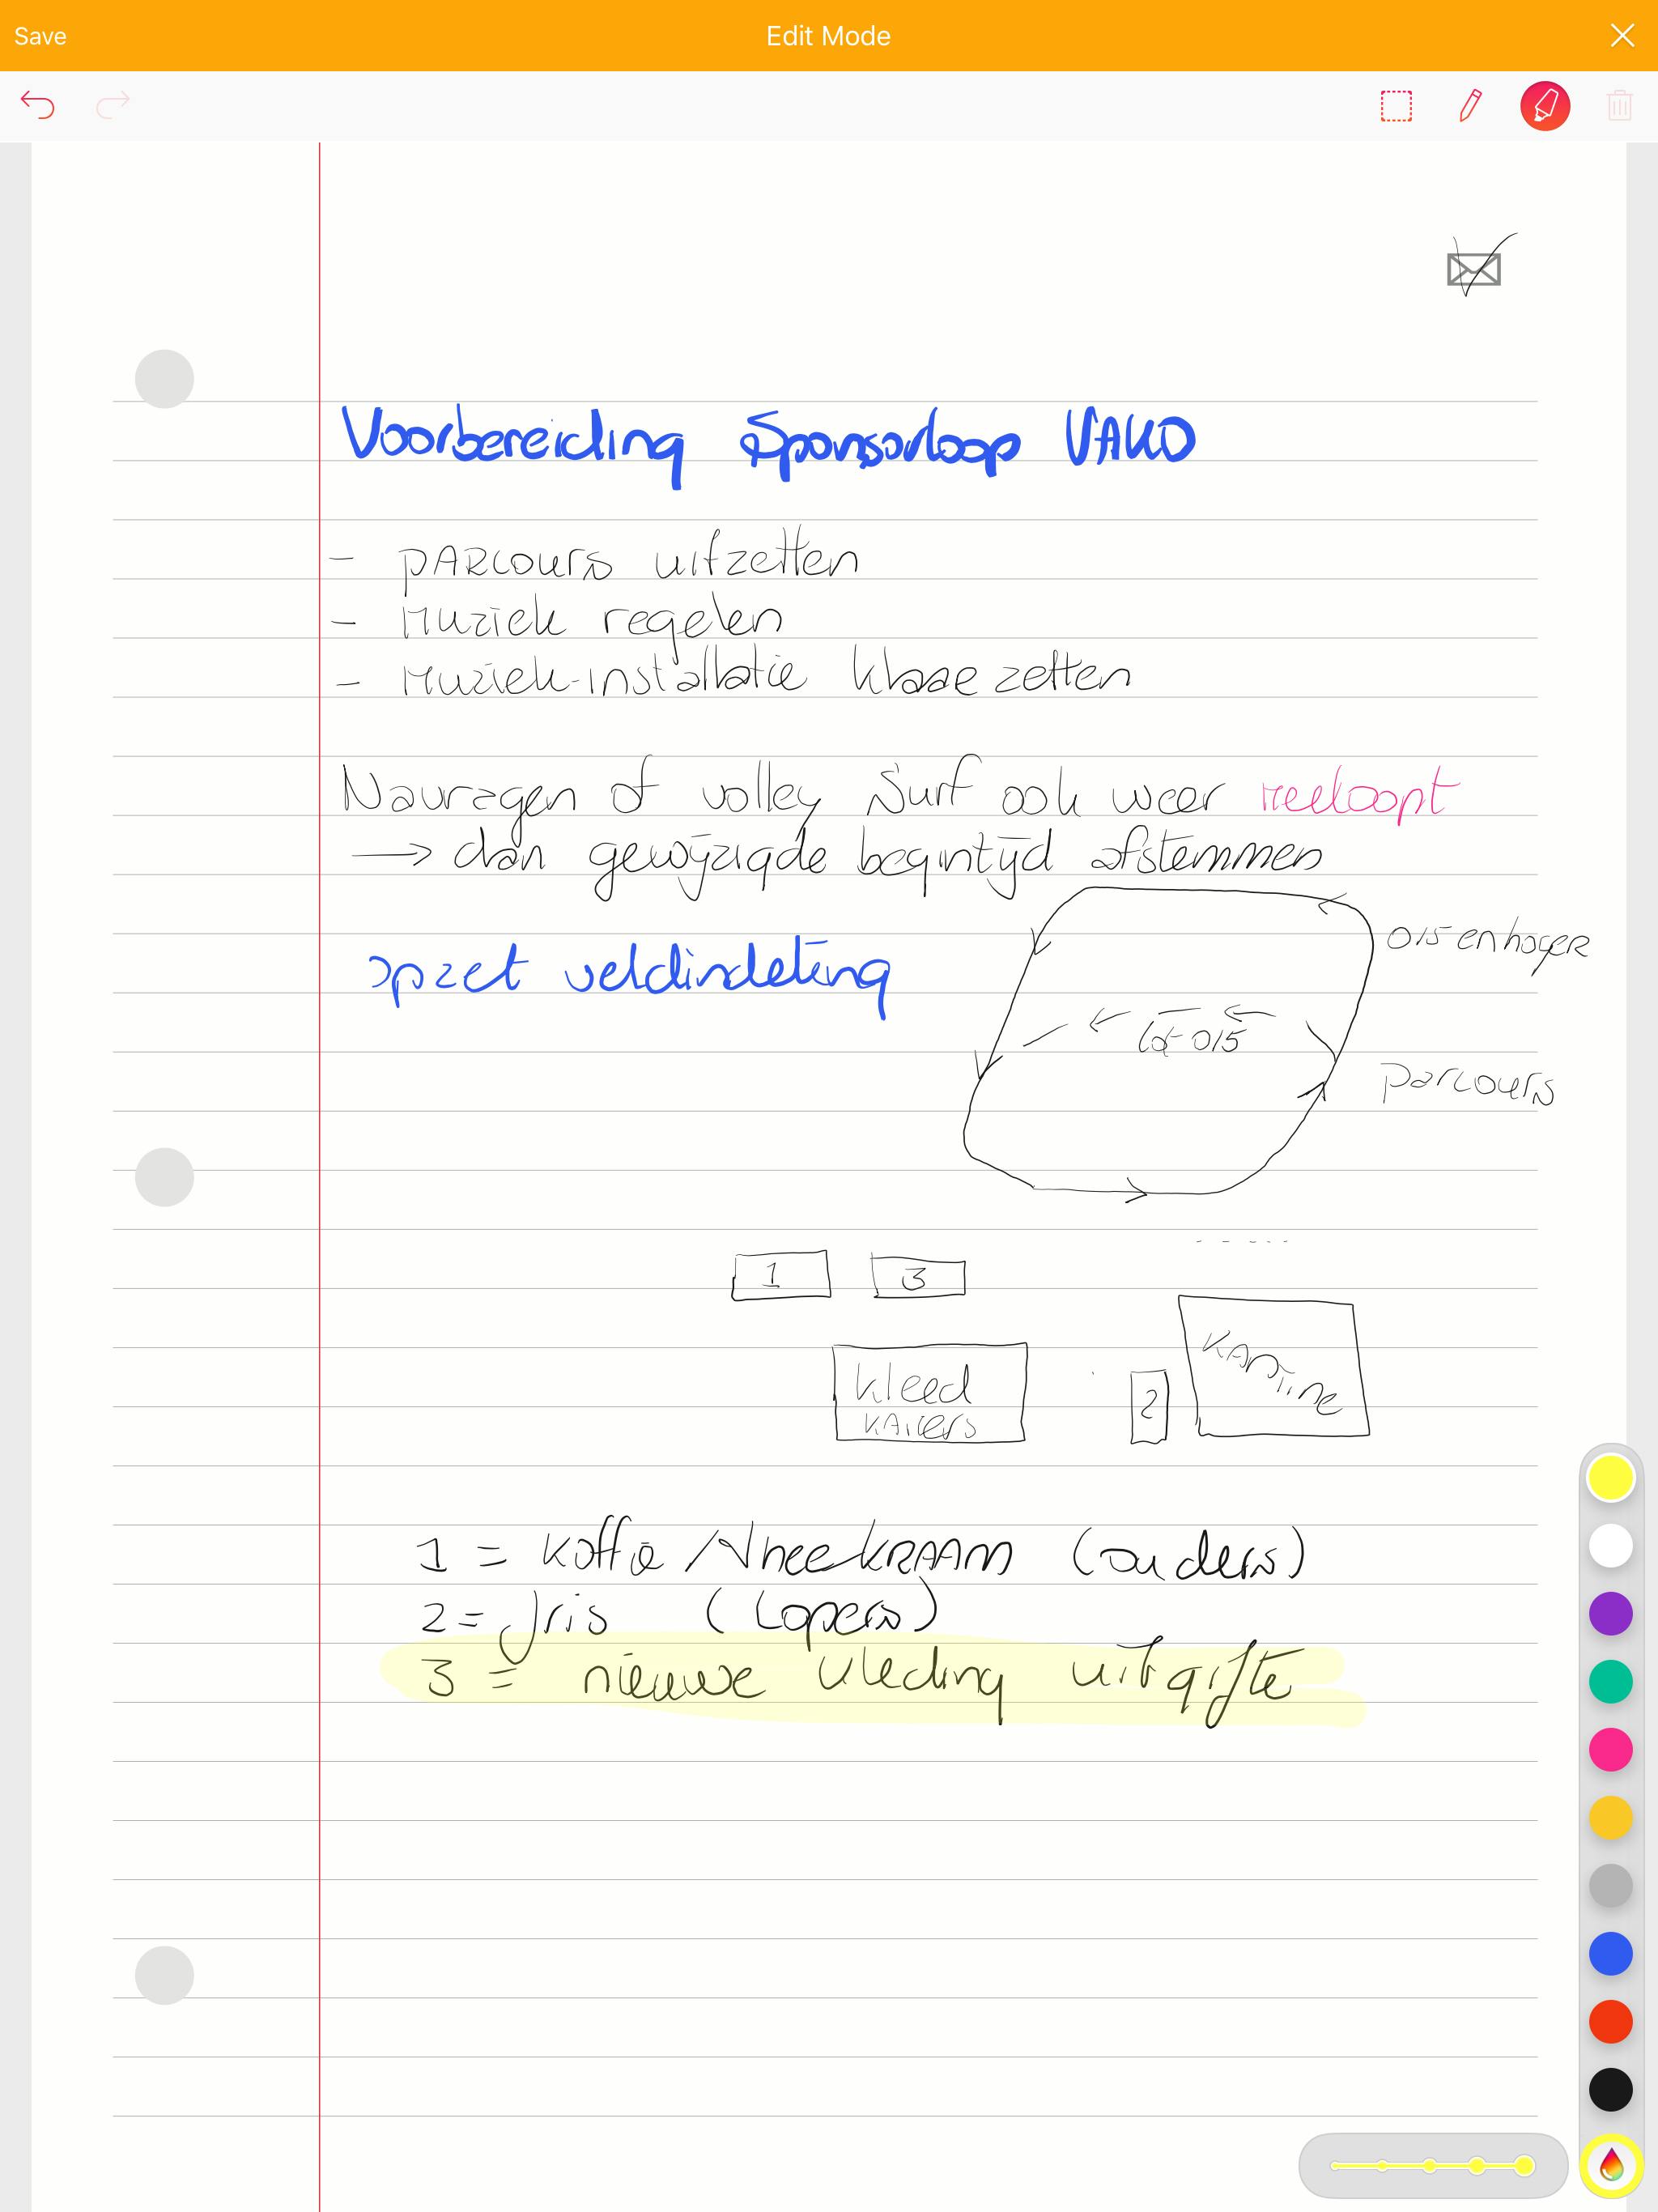 Save
Edit Mode
Voorbereiding Sponsorloop VAKO
- PARCOURS uitzetten
- Muziek regelen
- Muziek-installatie klaar zetten
Navragen of volley Surf ook weer meeloopt
→ dan gewijzigde begintijd afstemmen
opzet veldindeling
O15 en hoger
tot O15
parcours
1
3
Kleed
KAMERS
2
KANTINE
1 = Koffie / theekRAAM (ouders)
2 = Iris (lopers)
3 = nieuwe kleding uitgifte